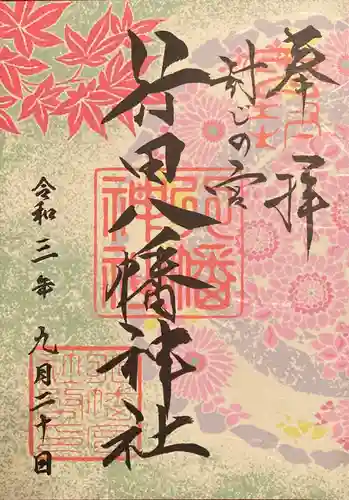 奉拝
封じの宮
行田八幡神社
八幡神社
令和三年 九月二十日